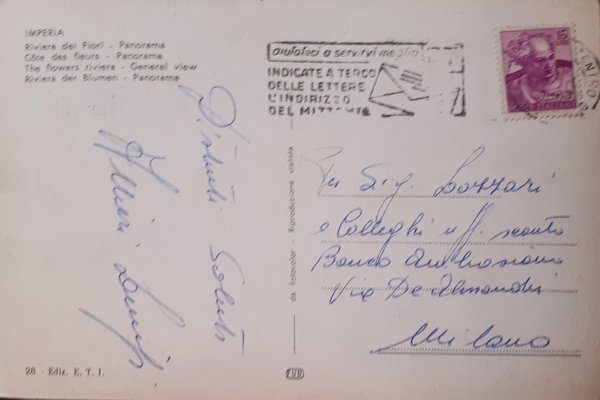 IMPERIA
Riviera dei Fiori - Panorama
Côte des fleurs - Panorama
The flowers riviera - General view
Riviera der Blumen - Panorama
aiutateci a servirvi meglio
INDICATE A TERGO
DELLE LETTERE
L'INDIRIZZO
DEL MITTENTE
15
Distinti Saluti
Luigi
da fotocolor - Riproduzione vietata
Sig. Lazzari
e Colleghi uff. sconto
Banco Ambrosiano
Via De Alessandri
Milano
28 - Ediz. E. T. I.